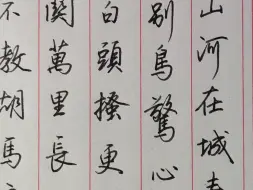 山河在城春
别鳥驚心
白頭搔更
關萬里長
不教胡馬